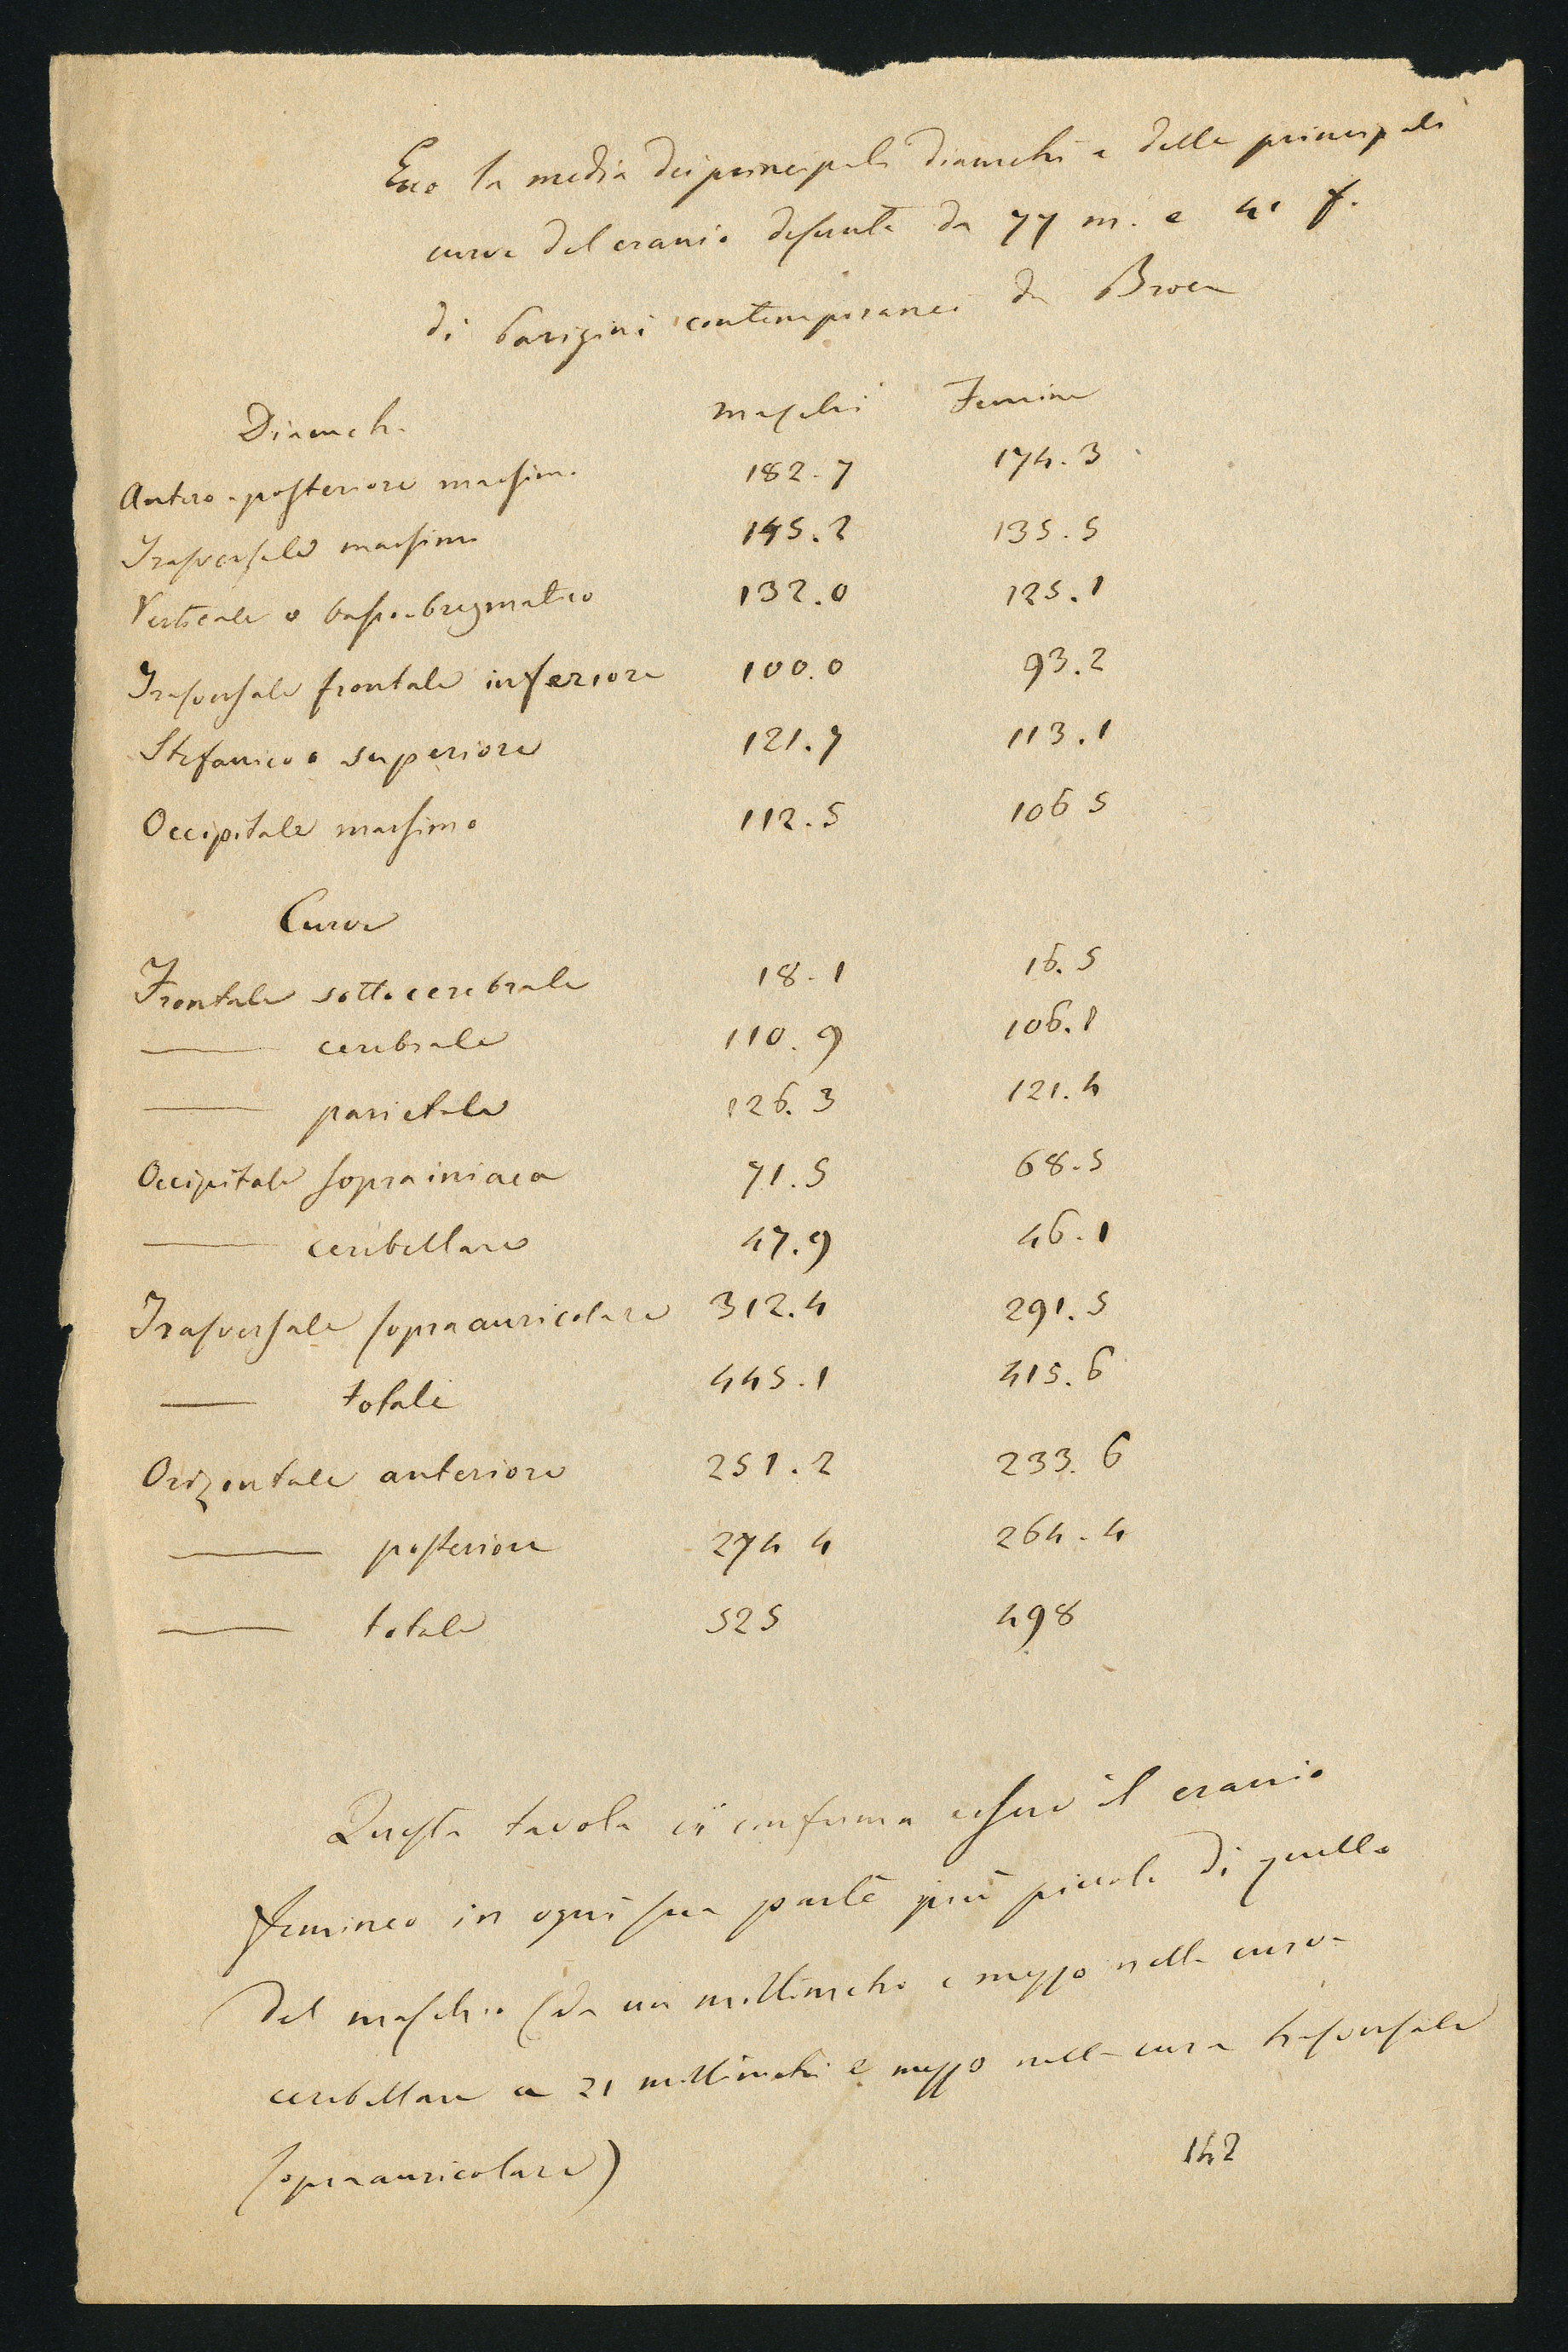 Ecco la media dei principali diametri e delle principali
curve del cranio desunte da 77 m. e 41 f.
di Parigini contemporanei da Broca
Diametri maschi Femine
Antero-posteriore massimo 182.7 174.3
Trasversale massimo 145.2 135.5
Verticale o basio-bregmatico 132.0 125.1
Trasversale frontale inferiore 100.0 93.2
Stefanico o superiore 121.7 113.1
Occipitale massimo 112.5 106 5
Curve
Frontale sottocerebrale 18.1 16.5
— cerebrale 110.9 106.1
— parietale 126.3 121.4
Occipitale soprainiaca 71.5 68.5
— cerebellare 47.9 46.1
Trasversale sopraauricolare 312.4 291.5
— totale 445.1 415.6
Orizontale anteriore 251.2 233.6
— posteriore 274 4 264.4
— totale 525 498
Questa tavola ci conferma essere il cranio
femineo in ogni sua parte più piccolo di quello
del maschio (da un millimetro e mezzo nella curva
cerebellare a 21 millimetri e mezzo nella curva trasversale
sopraauricolare)
142